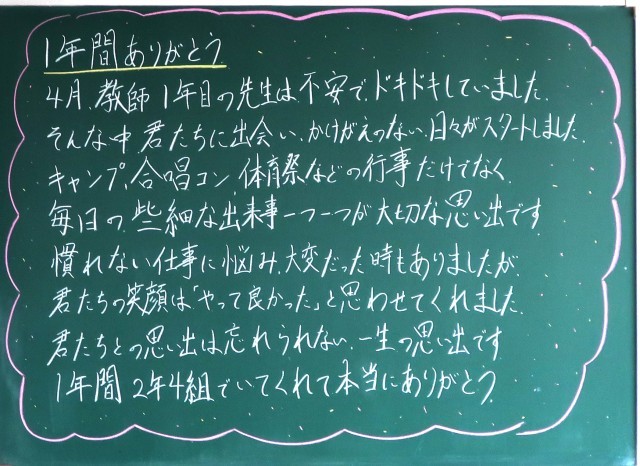 1年間ありがとう
4月、教師1年目の先生は不安で、ドキドキしていました。
そんな中君たちに出会い、かけがえのない、日々がスタートしました。
キャンプ、合唱コン、体育祭などの行事だけでなく、
毎日の、些細な出来事一つ一つが大切な思い出です
慣れない仕事に悩み、大変だった時もありましたが、
君たちの笑顔は「やって良かった」と思わせてくれました。
君たちとの思い出は忘れられない、一生の思い出です
1年間2年4組でいてくれて本当にありがとう。